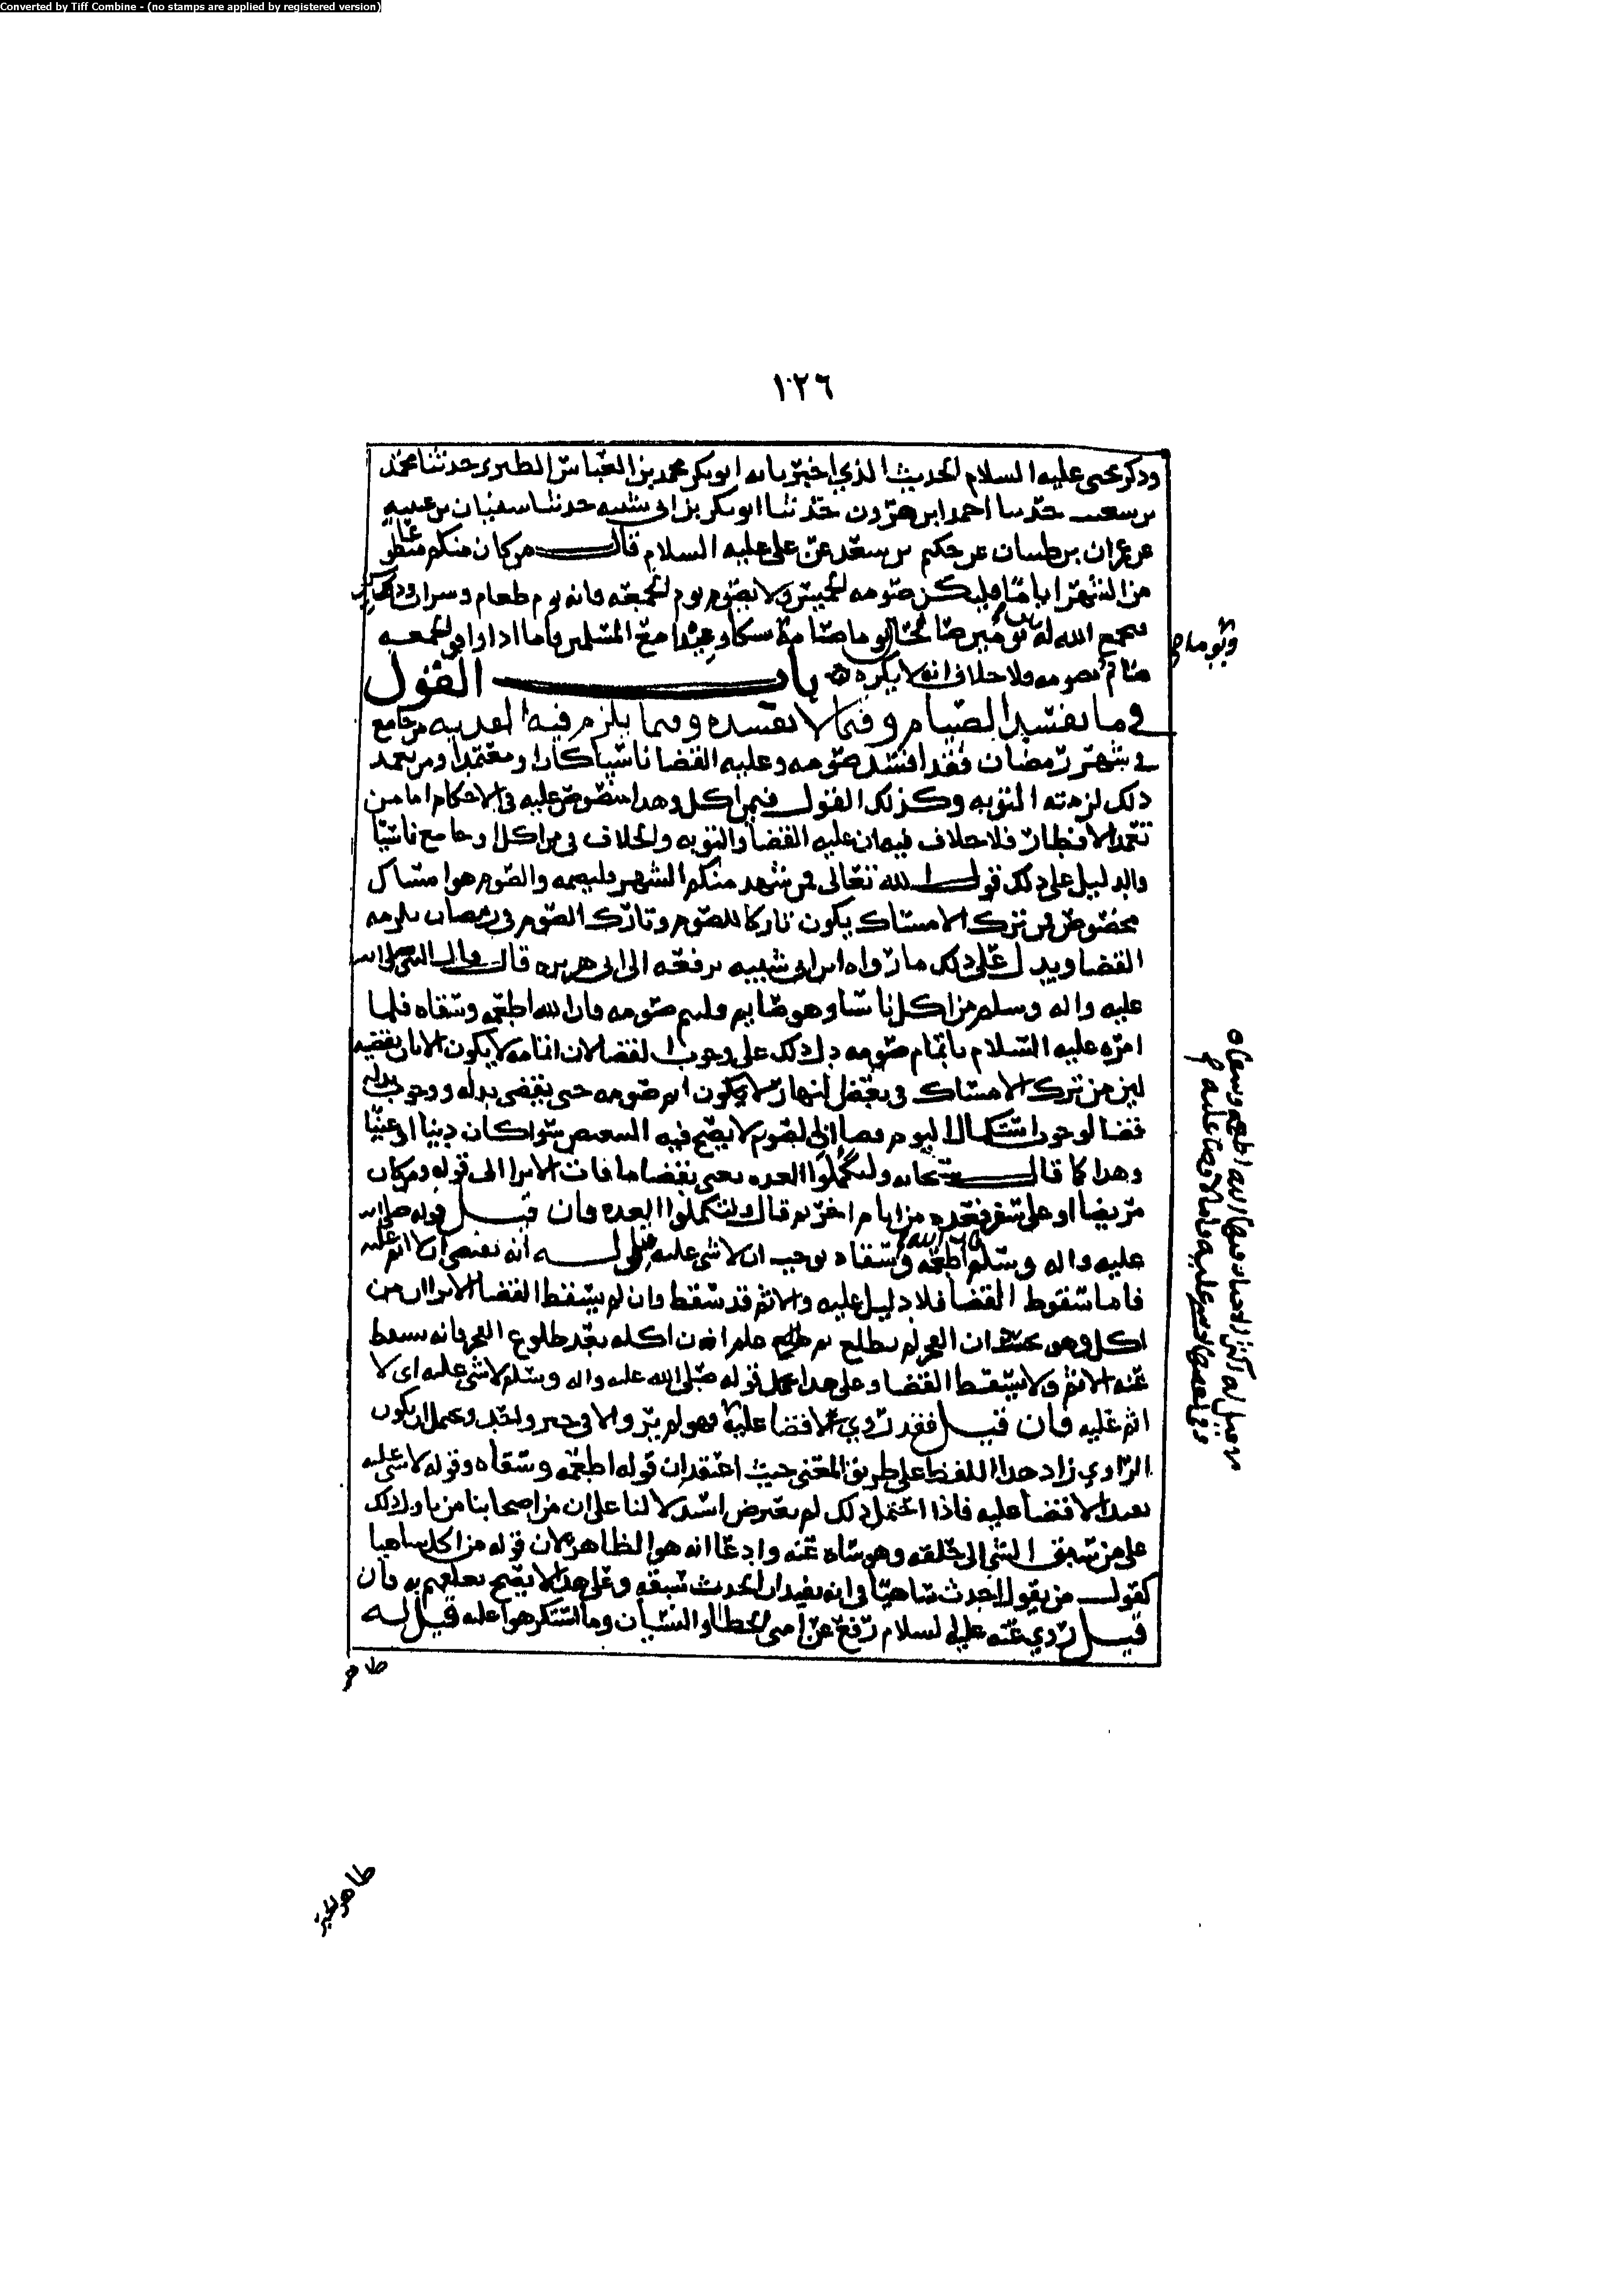 Converted by Tiff Combine - (no stamps are applied by registered version)
١٠٢٦
ودكر يحيى عليه السلام الحديث الذي اخبرنا به ابو بكر محمد بن العباس الطبري حدثنا محمد
بن سعيد حدثنا احمد ابن هرون حدثنا ابو بكر بن ابي شيبه حدثنا سفيان بن عيينه
عن عمران بن ظبيان عن حكيم بن سعد عن علي عليه السلام قال من كان منكم متطوعا
من الشهر اياما فليكن صومه الخميس ولا يصوم يوم الجمعه فانه يوم طعام وشراب وذكر
فيجمع الله له يومين صالحين يوما صيامه ونسكا وعيدا مع المسلمين فاما اذا وافق الجمعه
ويوما
صيام يصومه فلا خلاف انه لا يكره باب القول
في ما يفسد الصيام وفيما لا يفسده وفيما يلزم فيه الفديه من جامع
في شهر رمضان فقد افسد صومه وعليه القضا ناسيا كان او متعمدا ومن تعمد
ذلك لزمته التوبه وكذلك القول فيمن اكل وهذا منصوص عليه في الاحكام اما من
تعمد الافطار فلا خلاف فيه ان عليه القضا والتوبه والخلاف في من اكل او جامع ناسيا
والدليل على ذلك قول الله تعالى فمن شهد منكم الشهر فليصمه والصوم هو امساك
مخصوص فمن ترك الامساك يكون تاركا للصوم وتارك الصوم في رمضان يلزمه
القضا ويدل على ذلك ما رواه ابن ابي شيبه يرفعه الى ابي هريره قال قال النبي صلى الله
عليه واله وسلم من اكل ناسيا وهو صايم فليتم صومه فان الله اطعمه وسقاه فلما
امره عليه السلام باتمام صومه دل ذلك على وجوب القضا لان اتمامه لا يكون الا بان يقضيه
لان من ترك الامساك في بعض النهار لا يكون اتم صومه حتى يقضي بدله ووجوب بدله
قضا لوجوب استكمال اليوم وصا الى الصوم لا يصح فيه التبعيض سوا كان دينا او عينا
وهذا كما قال سبحانه ولتكملوا العده يعني بقضا ما فات الا ترا الى قوله ومن كان
مريضا او على سفر فعده من ايام اخر ثم قال ولتكملوا العده فان قيل قوله صلى الله
عليه واله وسلم فان الله اطعمه وسقاه يوجب ان لا شي عليه قيل له انه يقتضي ان لا اثم عليه
فاما سقوط القضا فلا دليل عليه والاثم قد سقط وان لم يسقط القضا الا ترا ان من
اكل وهو عنده ان الفجر لم يطلع ثم علم ان اكله بعد طلوع الفجر فانه يسقط
عنه الاثم ولا يسقط القضا وعلى هذا يحمل قوله صلى الله عليه واله وسلم لا شي عليه اي لا
اثم عليه فان قيل فقد روي لا قضا عليه فهو لم يرو الا في خبر واحد ويحتمل ان يكون
الراوي زاد هذا اللفظ على طريق المعنى حيث اعتقد ان قوله اطعمه وسقاه وقوله لا شي عليه
يفيد الا قضا عليه فاذا احتمل ذلك لم يعترض استدلالنا على ان من اصحابنا من تاول ذلك
على من سبق الشي الى حلقه وهو ساه عنه وادعا انه هو الظاهر لان قوله من اكل ساهيا
كقول من يقول احدث ساهيا في انه يفيد ان الحدث سبقه وعلى هذا لا يصح تعلقهم به فان
قيل روي عنه عليه السلام رفع عن امتي الخطا والنسيان وما استكرهوا عليه قيل له
ظاهر
ظاهر الخبر